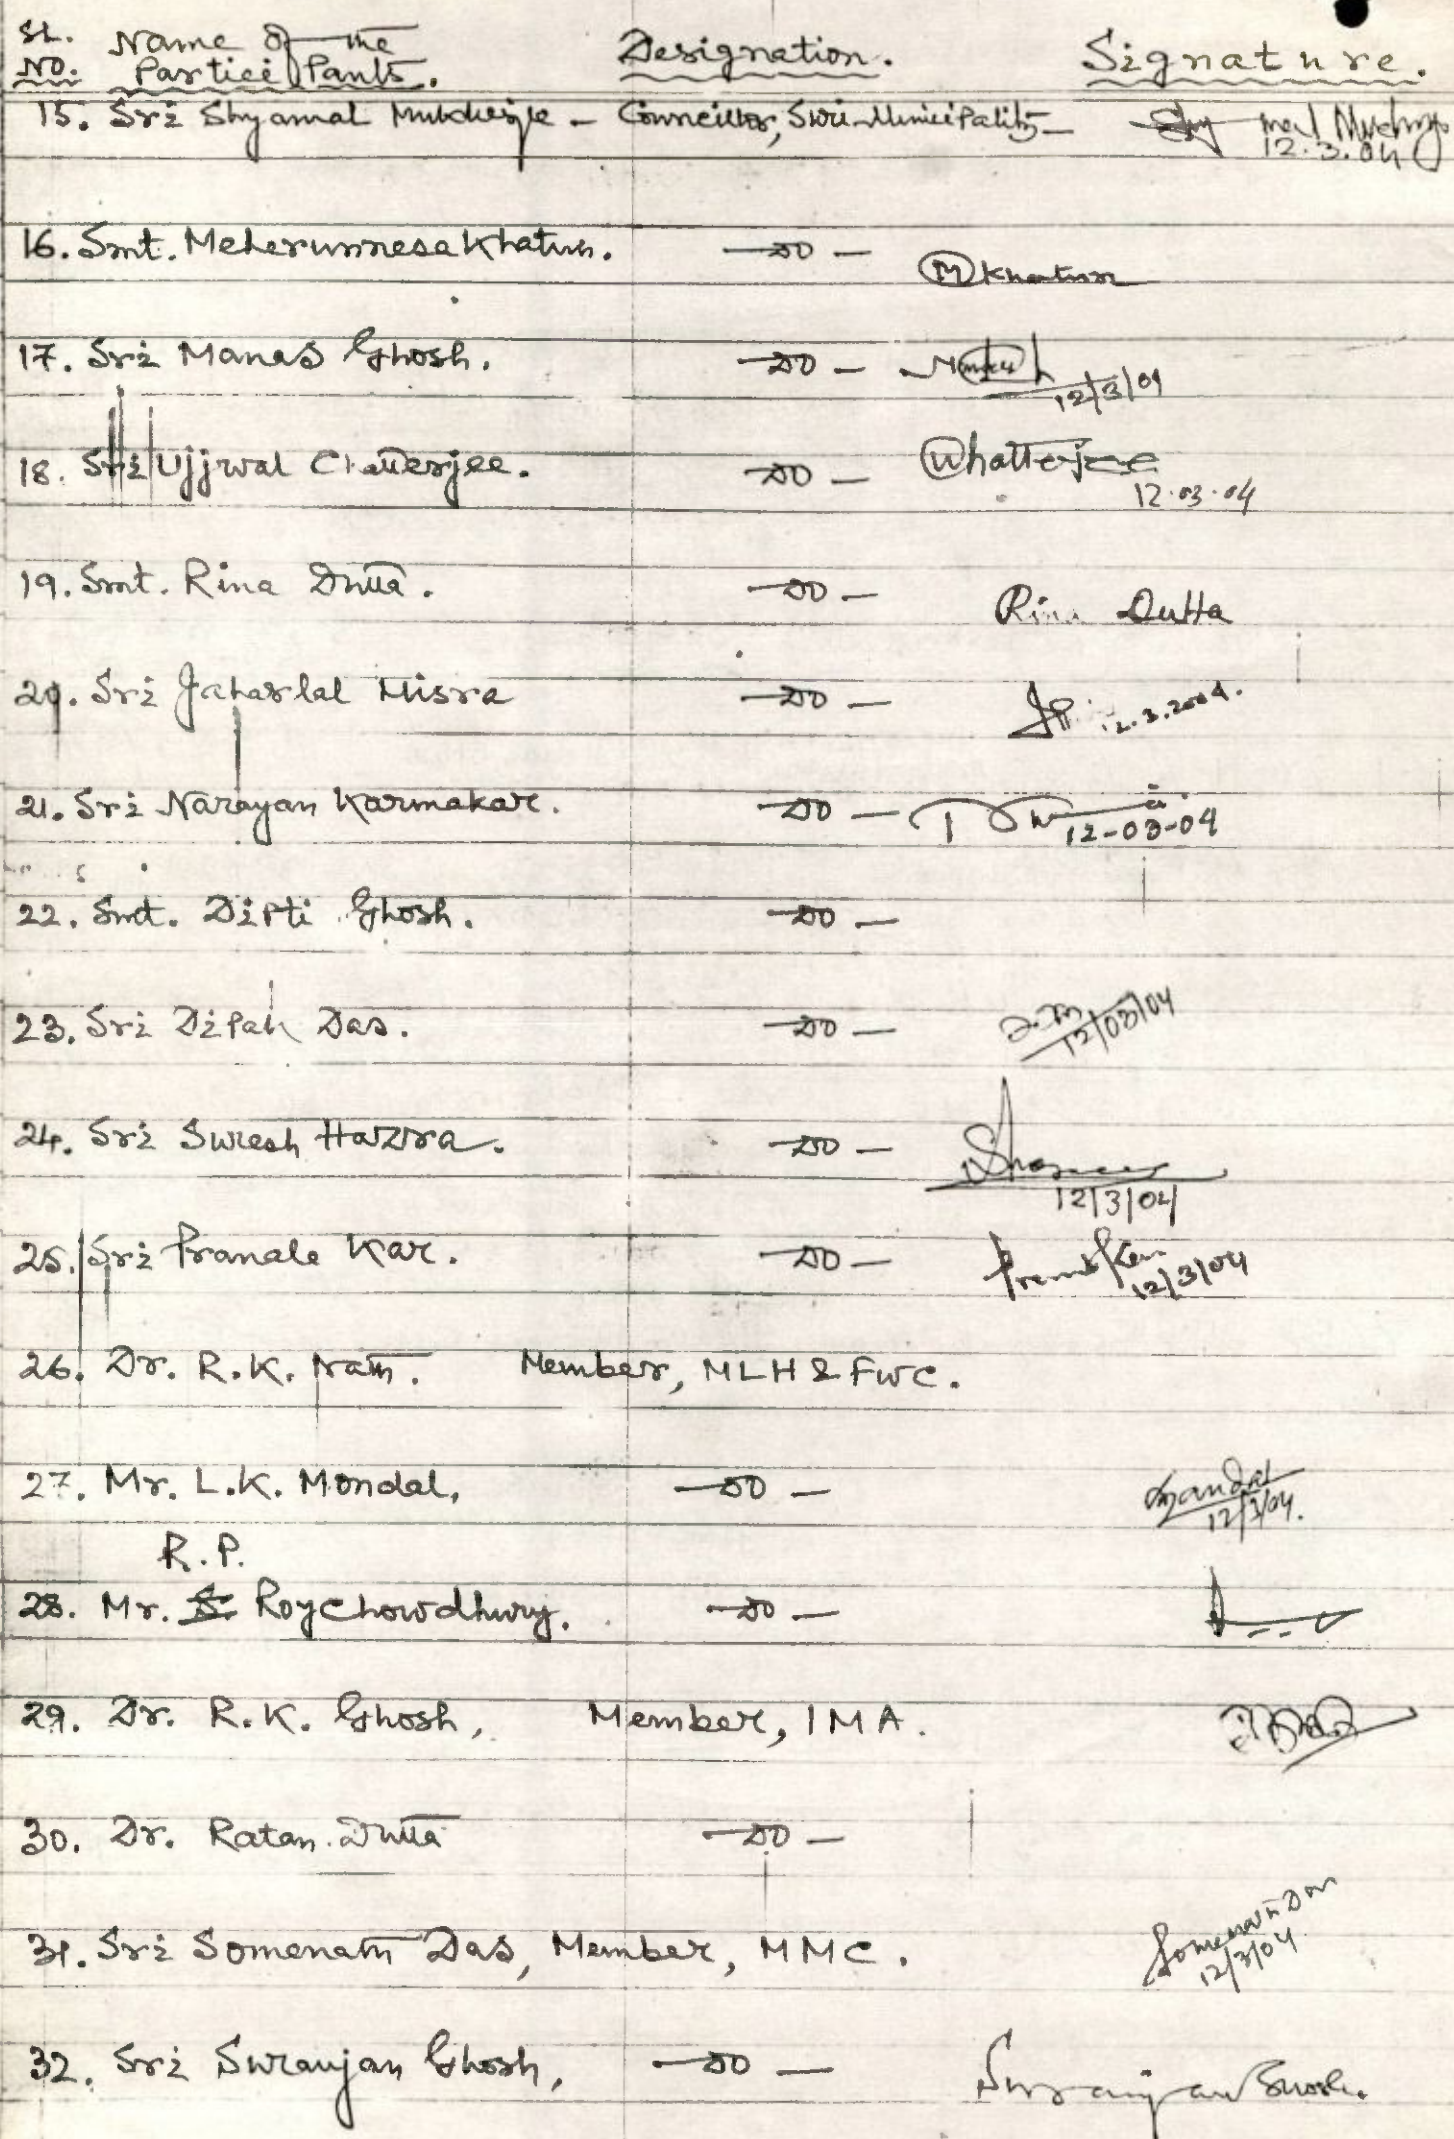 SL. NO. Name of the Participants. Designation. Signature.
15. Sri Shyamal Mukherjee - Councillor, Suri Municipality -
12.3.04
16. Smt. Meherunnesa Khatun. -DO- M Khatun
17. Sri Manas Ghosh. -DO-
12/3/04
18. Sri Ujjwal Chatterjee. -DO- Uchatterjee
12.03.04
19. Smt. Rina Dutta. -DO- Rina Dutta
20. Sri Jaharlal Misra -DO- 12.3.2004.
21. Sri Narayan Karmakar. -DO-
12-03-04
22. Smt. Dipti Ghosh. -DO-
23. Sri Dipak Das. -DO-
12/03/04
24. Sri Suresh Hazra. -DO-
12/3/04
25. Sri Pranab Kar. -DO-
12/3/04
26. Dr. R.K. Nath. Member, MLH & FWC.
27. Mr. L.K. Mondal, -DO- Mandal
12/3/04.
R.P.
28. Mr. Roy Chowdhury. -DO-
29. Dr. R.K. Ghosh, Member, IMA.
30. Dr. Ratan Dutta -DO-
31. Sri Somenath Das, Member, MMC. Somenath Das
12/3/04
32. Sri Suranjan Ghosh, -DO- Suranjan Ghosh.